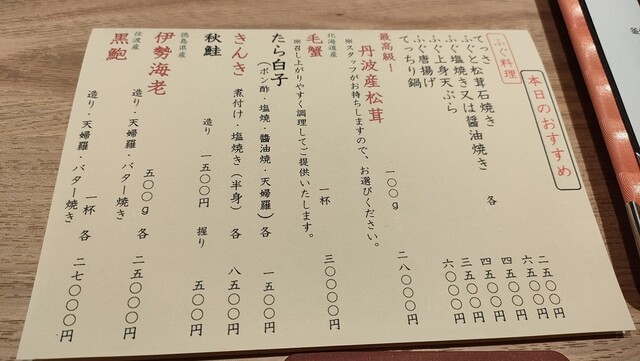 本日のおすすめ
ふぐ料理
てっさ 二五〇〇円
ふぐと松茸石焼き 六五〇〇円
ふぐ塩焼き又は醤油焼き 各 四五〇〇円
ふぐ上身天ぷら 四五〇〇円
ふぐ唐揚げ 三五〇〇円
てっちり鍋 六〇〇〇円
最高級!
丹波産松茸 一〇〇g 二八〇〇〇円
※スタッフがお持ちしますので、お選びください。
北海道産
毛蟹 一杯 三〇〇〇〇円
※召し上がりやすく調理してご提供いたします。
たら白子
(ポン酢・塩焼・醤油焼・天婦羅) 各 一五〇〇円
きんき 煮付け・塩焼き(半身) 各 八五〇〇円
秋鮭 造り 一五〇〇円 握り 五〇〇円
徳島県産
伊勢海老 五〇〇g 各 二五〇〇〇円
造り・天婦羅・バター焼き
佐渡産
黒鮑 一杯 各 二七〇〇〇円
造り・天婦羅・バター焼き